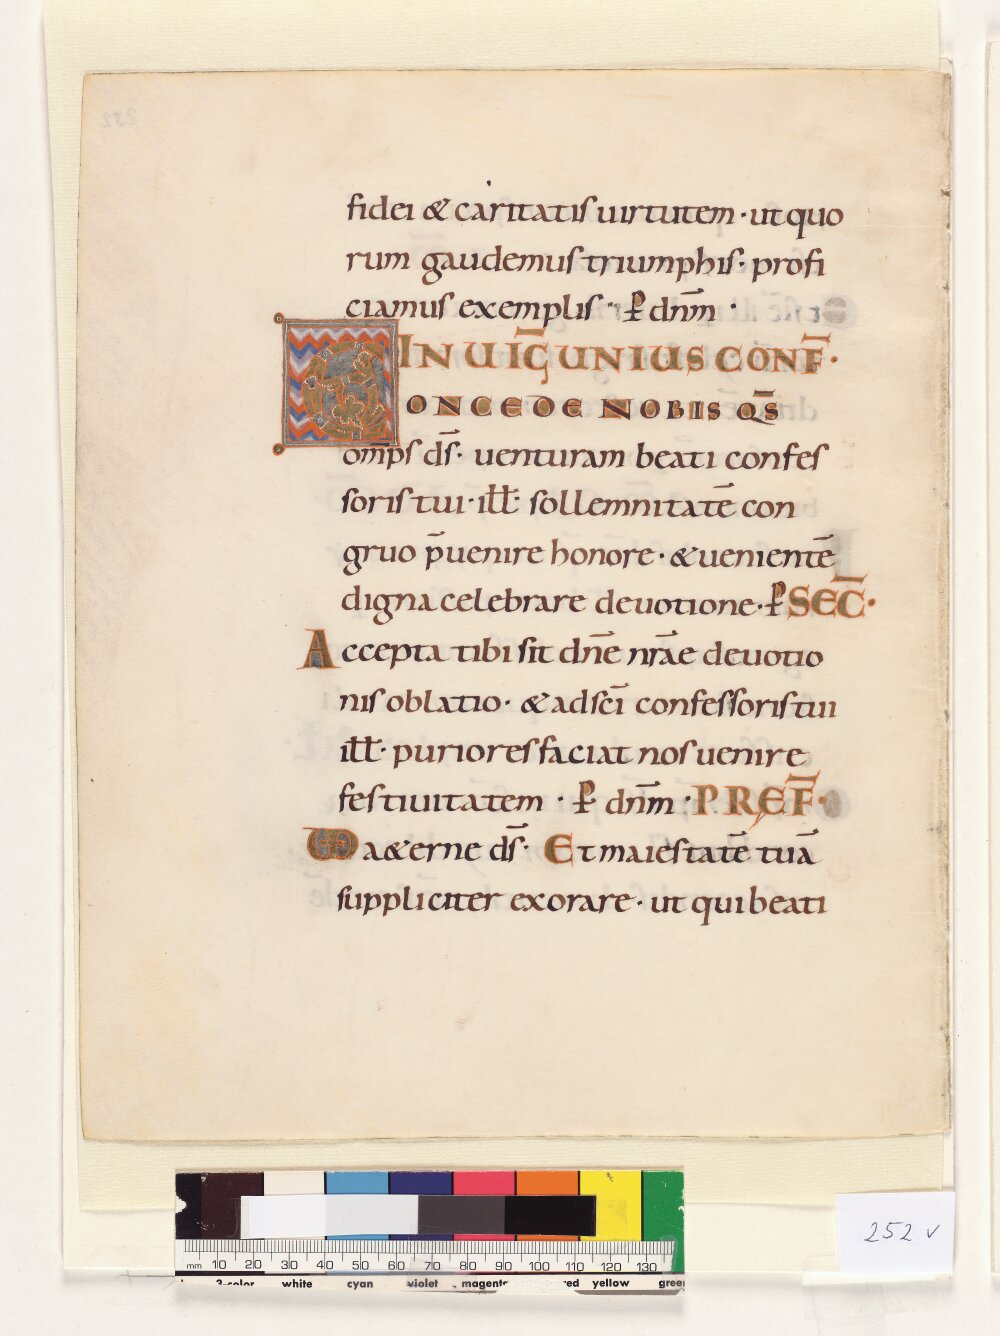 fidei & caritatis uirtutem · ut quo
rum gaudemus triumphis · profi
ciamus exemplis · p̄ dn̄m ·
IN UIḠ UNIUS CONF̄ ·
CONCEDE NOBIS QS̄
om̄ps ds̄ · uenturam beati confes
soris tui · ill̄ · sollemnitatē con
gruo p̄uenire honore · & uenientē
digna celebrare deuotione · p̄ SEC̄ ·
Accepta tibi sit dn̄e nr̄ae deuotio
nis oblatio · & ad sc̄i confessoris tui
ill̄ · puriores faciat nos uenire
festiuitatem · p̄ dn̄m · PRĘF̄ ·
UD a&erne ds̄ · Et maiestatē tuā
suppliciter exorare · ut qui beati
252 v
mm 10 20 30 40 50 60 70 80 90 100 110 120 130
3-color white cyan violet magenta red yellow green